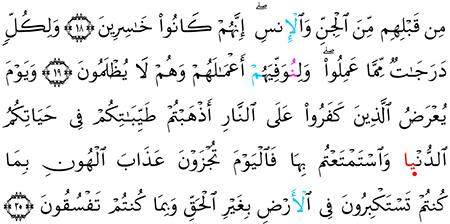 مِن قَبْلِهِم مِّنَ الْجِنِّ وَالْإِنسِ ۖ إِنَّهُمْ كَانُوا خَاسِرِينَ ﴿١٨﴾ وَلِكُلٍّ
دَرَجَاتٌ مِّمَّا عَمِلُوا ۖ وَلِنُوَفِّيَهُمْ أَعْمَالَهُمْ وَهُمْ لَا يُظْلَمُونَ ﴿١٩﴾ وَيَوْمَ
يُعْرَضُ الَّذِينَ كَفَرُوا عَلَى النَّارِ أَذْهَبْتُمْ طَيِّبَاتِكُمْ فِي حَيَاتِكُمُ
الدُّنْيا وَاسْتَمْتَعْتُم بِهَا فَالْيَوْمَ تُجْزَوْنَ عَذَابَ الْهُونِ بِمَا
كُنتُمْ تَسْتَكْبِرُونَ فِي الْأَرْضِ بِغَيْرِ الْحَقِّ وَبِمَا كُنتُمْ تَفْسُقُونَ ﴿٢٠﴾